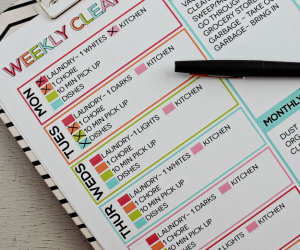 WEEKLY CLEA
MON
LAUNDRY - 1 WHITES
KITCHEN
1 CHORE
10 MIN PICK UP
DISHES
TUES
LAUNDRY - 1 DARKS
KITCHEN
1 CHORE
10 MIN PICK UP
DISHES
WEDS
LAUNDRY - 1 LIGHTS
KITCHEN
1 CHORE
10 MIN PICK UP
DISHES
THUR
LAUNDRY - 1 WHITES
KITCHEN
1 CHORE
10 MIN PICK UP
DISHES
LAUNDRY - 1 DARKS
KITCHEN
1 CHORE
10 MIN PICK UP
LAUNDRY
KITCHEN
VACUUM
SWEEP/
GROCERY
GARBAGE - TAKE O
GARBAGE - BRING IN
MONTHLY
DUST
ORG
CL